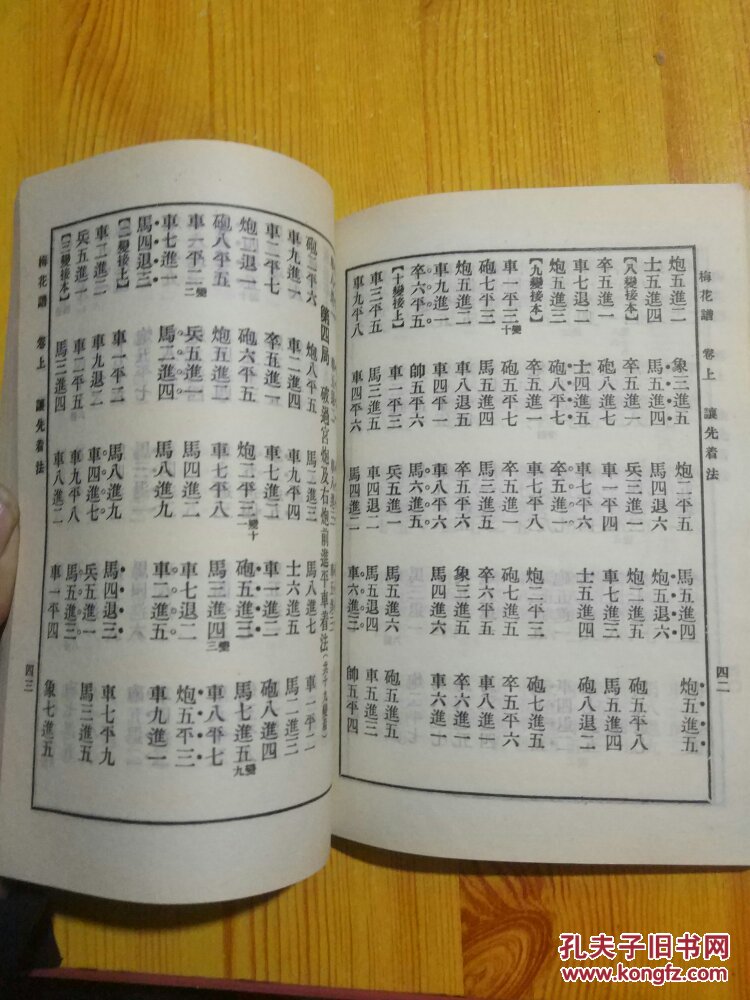 梅花譜 卷上 讓先着法 四二
炮五進二 象三進五 炮二平五 馬五進四 炮五進五
士五進四 馬五進四 馬四退六 炮五退六
【八變接本】 卒五進一 兵三進一 砲五平八
卒五進一 砲八進四 馬五進四
士四進五 士五進四 砲八退二
炮五進二 砲八平七 車七平八
【九變接本】 卒五進一 卒五進一 炮二平三 砲七進五
車一平三變十 砲五平七 馬三進五 砲七進五 卒五平六
砲七平三 馬五進四 卒五平六 卒六平五 車六進一
炮五進四 車八退五 卒五平六 象三進五 卒六進一
車九進二 車四平一 車八平六 馬四進六 車六進一
卒六平五 帥五平六 馬六進五
【十變接上】 車一平三 兵五進一 馬五進六 砲五進五
車三平五 馬三進五 車四退二 馬五退四 車五進三
車九平八 車四平六 馬四進二 車六進三 帥五平四
第四局 破過宮炮及右炮前進平車着法
砲二平六 炮八平五 馬二進三 馬八進七 車一平二
車九進一 車二進二 車九平四 士六進五 馬二進三
車二平七 卒五進一 車七進二 車一進二 砲八進四
炮二退一 砲六平五 炮二平三變十一 砲五進三 馬七進五變九
砲八平五 炮五進四 車七平八 馬三進四變三 車八平七
車一平二變二 兵五進一 馬四進二 車七退二 炮五平三
車七進一 馬二進四 馬八進九 車二進五 車九進一
馬四退三
【二變接上】 車一平二 馬八進九 馬四退三 車七平九
車二進二 車九退二 車四進七 兵五進一 馬三進五
兵五進一 車二平五 車九平八 馬五進三
【三變接本】 馬三進四 車八進二 車一平四 象七進五
梅花譜 卷上 讓先着法 四三
孔夫子旧书网
www.kongfz.com